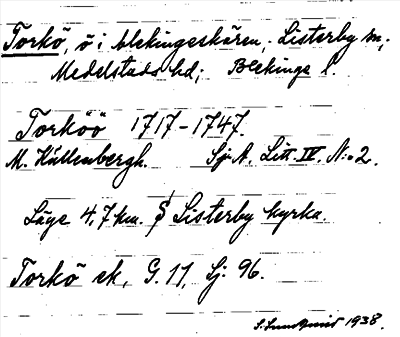 Torkö, ö i blekingeskären, Listerby sn,
Medelstads hd; Blekinge l.
Torköö 1717-1747.
M. Kullenbergh. Sj. A. Litt. IV. N:o 2.
Läge 4,7 km. S Listerby kyrka.
Torkö ek, G. 11, Sj: 96.
S. Lundquist 1938.